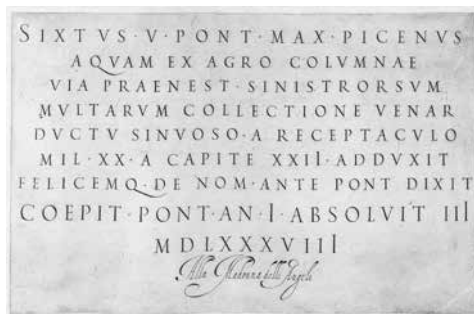 SIXTVS·V·PONT·MAX·PICENVS
AQVAM EX AGRO COLVMNAE
VIA PRAENEST·SINISTRORSVM
MVLTARVM COLLECTIONE VENAR
DVCTV SINVOSO·A RECEPTACVLO
MIL·XX·A CAPITE XXII·ADDVXIT
FELICEMQ·DE NOM·ANTE PONT DIXIT
COEPIT·PONT·AN·I·ABSOLVIT III
MDLXXXVIII
Alla Madonna delli Angeli